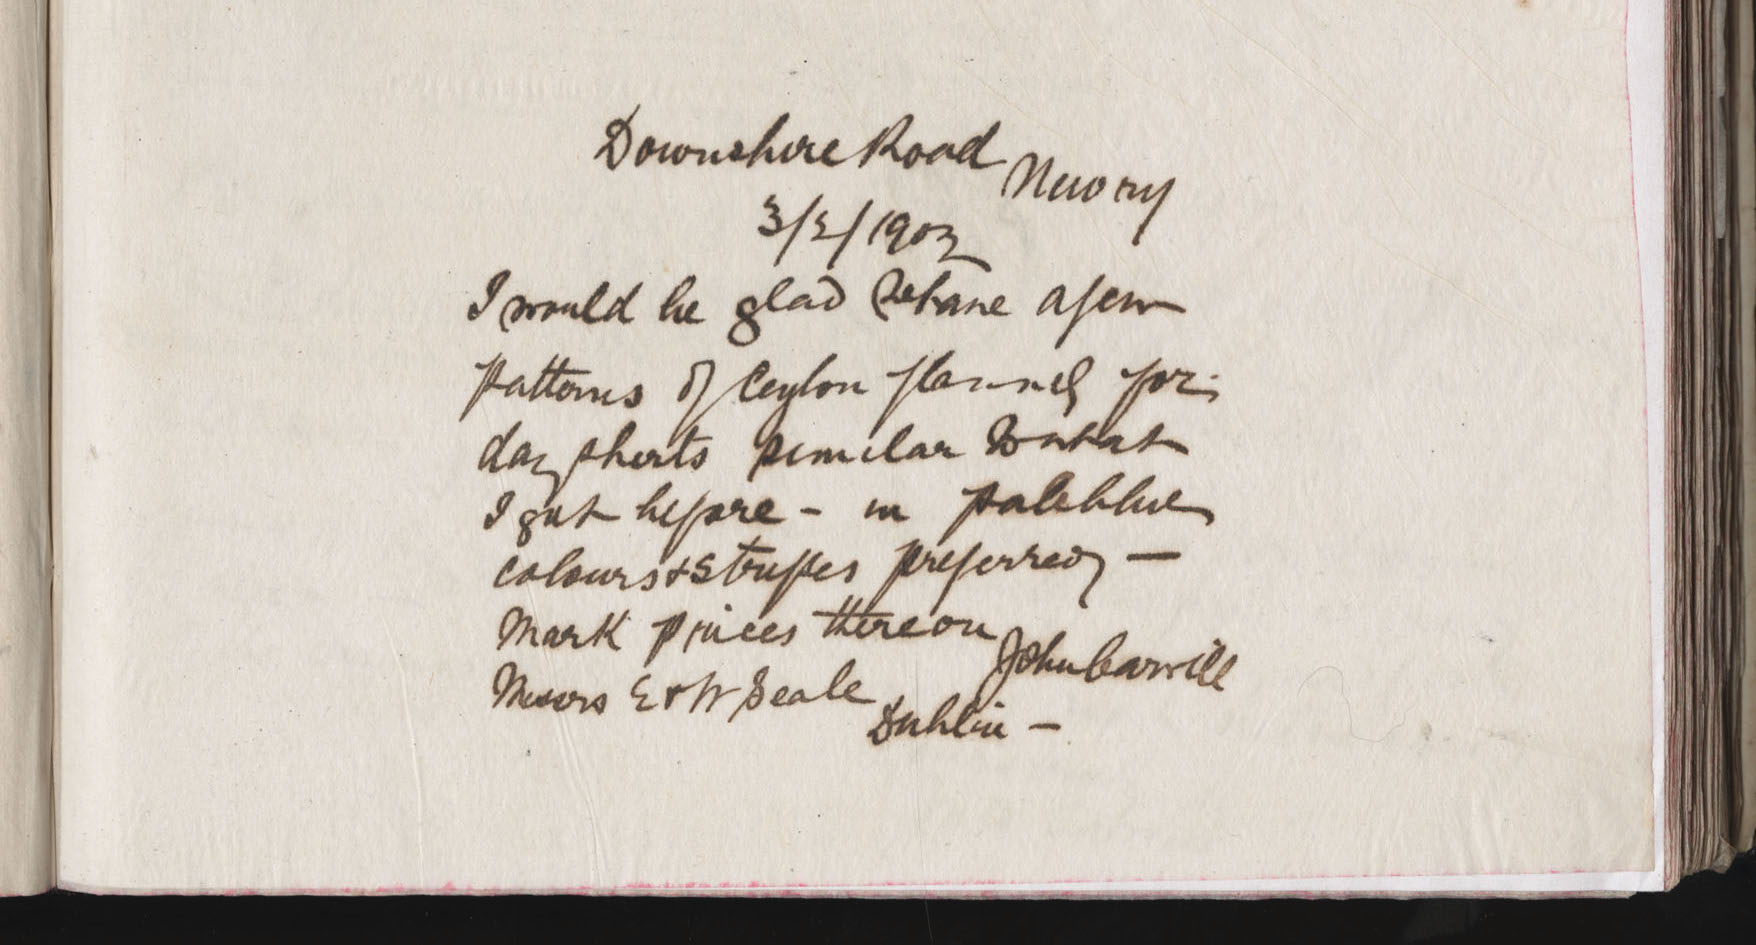 Downshire Road
Newry
3/2/1902
I would be glad to have a few
patterns of Ceylon flannel for
day shirts similar to what
I got before - in pale blue
colours & stripes preferred -
Mark prices thereon
John Carvill
Messrs E & W Seale
Dublin -